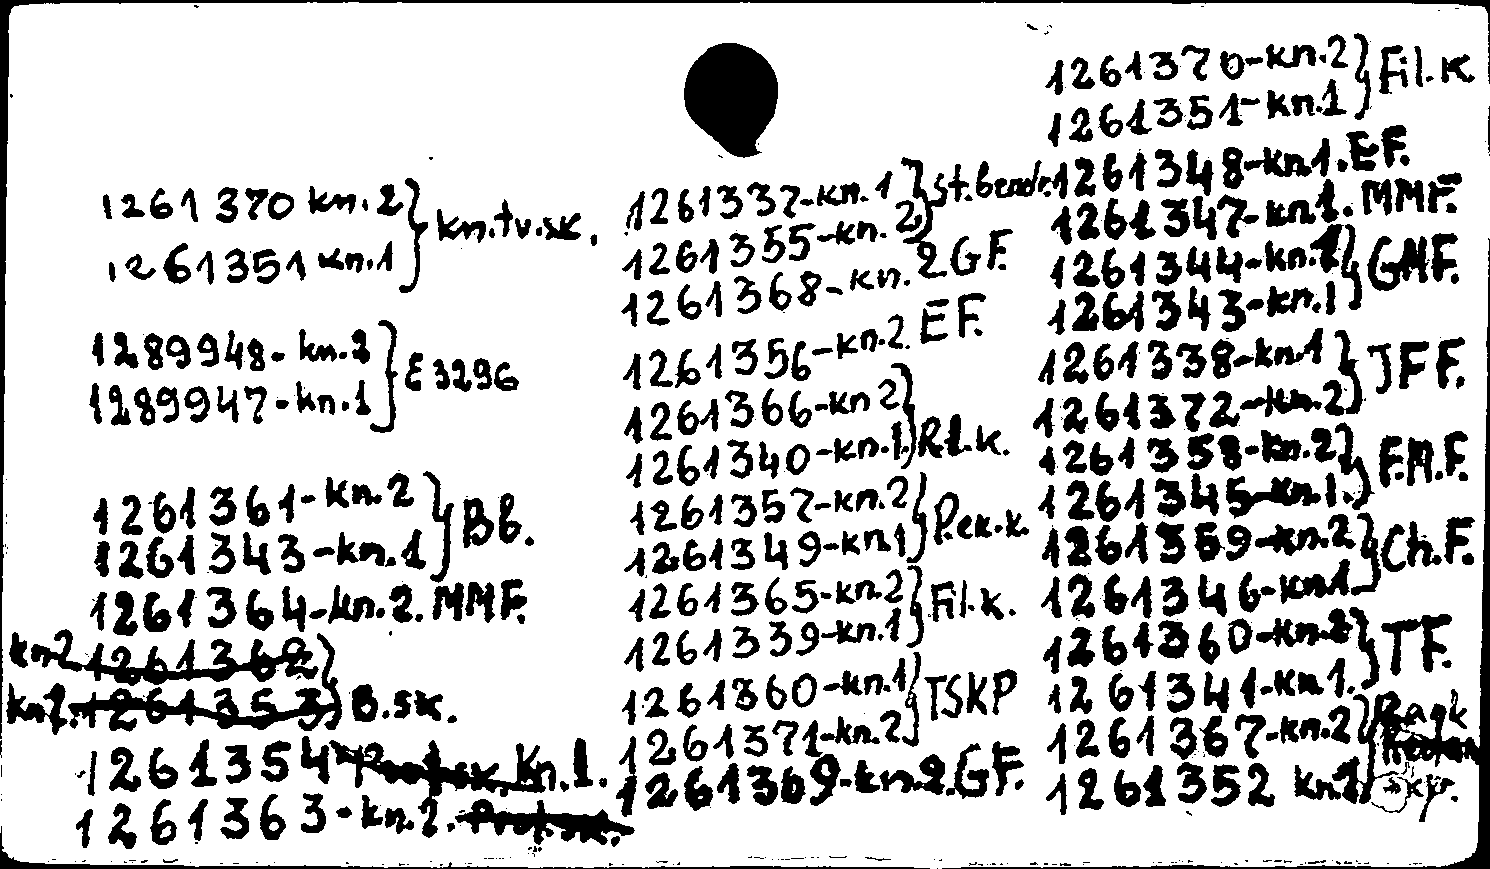 1261370 kn.2 } kn.tv.sk.
1261351 kn.1
1289948- kn.2 } E 3296
1289947-kn.1
1261361-kn.2 } Bb.
1261343-kn.1
1261364-kn.2. MMF.
kn2 1261362
kn2. 1261353 } B.sk.
1261354 Prof.sk. Kn.1.
1261363-kn.2. Prof.sk.
1261337-kn.1 } St.bendr.
1261355-kn.2
1261368-kn.2 GF.
1261356-kn.2 EF.
1261366-kn2 } R.l.k.
1261340-kn.1.
1261357-kn.2 } P.ek.k.
1261349-kn1
1261365-kn.2 } Fil.k.
1261339-kn.1
1261360-kn.1 } TSKP
1261371-kn.2
1261369-kn.2.GF.
1261370-kn.2 } Fil.K
1261351-kn.1
1261348-kn1.EF.
1261347-kn1. MMF.
1261344-kn.2 } GMF.
1261343-kn.1
1261338-kn.1 } JFF.
1261372-kn.2
1261358-kn.2 } F.M.F.
1261345-kn.1.
1261359-kn.2 } Ch.F.
1261346-kn1.
1261360-kn.2 } TF.
1261341-kn.1.
1261367-kn.2
1261352 kn.2